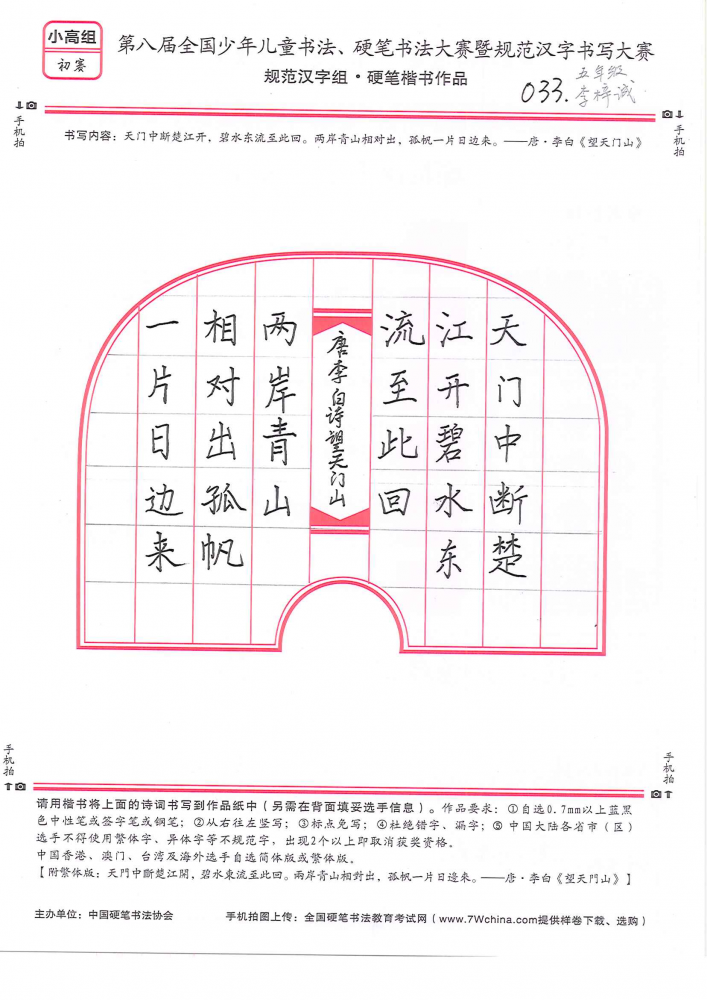 小高组
初赛
第八届全国少年儿童书法、硬笔书法大赛暨规范汉字书写大赛
规范汉字组·硬笔楷书作品
033.
五年级
李梓诚
手机拍
手机拍
书写内容：天门中断楚江开，碧水东流至此回。两岸青山相对出，孤帆一片日边来。——唐·李白《望天门山》
天门中断楚
江开碧水东
流至此回
唐李白诗望天门山
两岸青山
相对出孤帆
一片日边来
手机拍
手机拍
请用楷书将上面的诗词书写到作品纸中（另需在背面填妥选手信息）。作品要求：①自选0.7mm以上蓝黑
色中性笔或签字笔或钢笔；②从右往左竖写；③标点免写；④杜绝错字、漏字；⑤中国大陆各省市（区）
选手不得使用繁体字、异体字等不规范字，出现2个以上即取消获奖资格。
中国香港、澳门、台湾及海外选手自选简体版或繁体版。
【附繁体版：天門中斷楚江開，碧水東流至此回。兩岸青山相對出，孤帆一片日邊來。——唐·李白《望天門山》】
主办单位：中国硬笔书法协会
手机拍图上传：全国硬笔书法教育考试网（www.7Wchina.com提供样卷下载、选购）